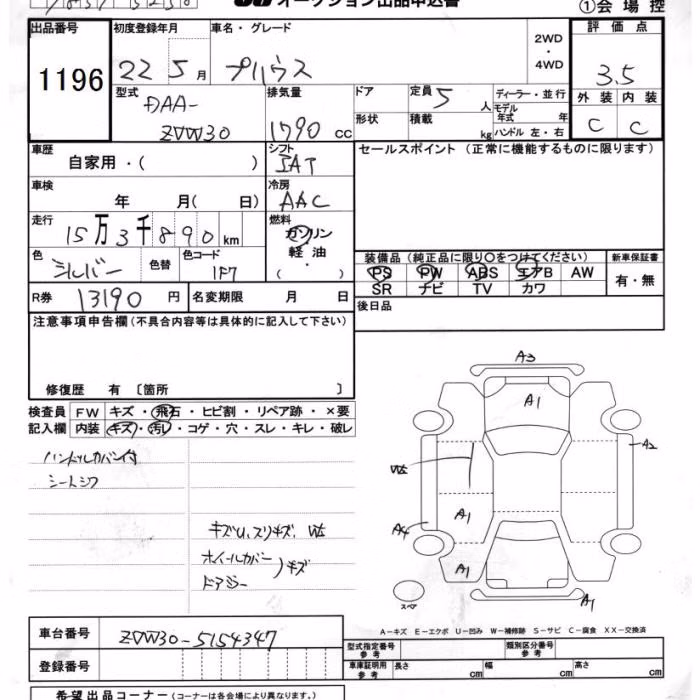 オークション出品申込書
①会場控
出品番号
初度登録年月
車名・グレード
評価点
1196
22 5月
プリウス
2WD
・
4WD
3.5
型式
DAA-
ZVW30
排気量
1790 CC
ドア
定員 5 人
ディーラー・並行
モデル年式 年
外装 内装
形状
積載 kg
ハンドル 左・右
C C
車歴
自家用・( )
シフト
IAT
セールスポイント (正常に機能するものに限ります)
車検
年 月( 日)
冷房
AAC
走行
15万3千890km
燃料
ガソリン
軽油
( )
色
シルバー
色替
色コード
1F7
装備品 (純正品に限り○をつけてください)
新車保証書
PS PW ABS エアB AW
有・無
SR ナビ TV カワ
R券 13190 円
名変期限 月 日
後日品
注意事項申告欄(不具合内容等は具体的に記入して下さい)
修復歴 有 〔箇所 〕
検査員 FW キズ・飛石・ヒビ割・リペア跡・×要
記入欄 内装 キズ・汚レ・コゲ・穴・スレ・キレ・破レ
ハンドルカバー付
シートシワ
キズU、スリキズ、U2
ホイールカバー
ドアミラー
キズ
A3
A1
A2
U2
A1
A4
A1
A1
スペア
A-キズ E-エクボ U-凹み W-補修跡 S-サビ C-腐食 XX-交換済
車台番号 ZVW30-5154347
型式指定番号 参考
類別区分番号 参考
登録番号
車庫証明用 参考
長さ cm
幅 cm
高さ cm
希望出品コーナー (コーナーは各会場により異なります。)